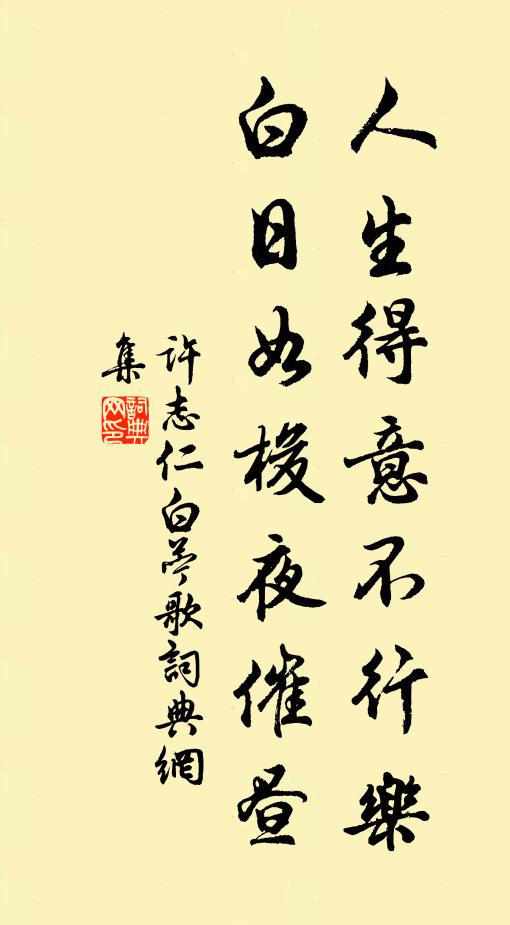 人生得意不行樂
白日如梭夜催昼
許志仁白苧歌詞典網
集
詞典
网印